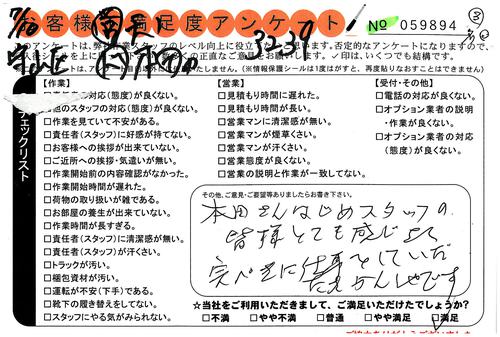 お客様不満足度アンケート
No 059894
③
7/10
3239
【作業】
対応(態度)が良くない。
他のスタッフの対応(態度)が良くない。
□作業を見ていて不安がある。
□責任者(スタッフ)に好感が持てない。
□お客様への挨拶が出来ていない。
□ご近所への挨拶・気遣いが無い。
□作業開始前の内容確認がなかった。
□作業開始時間が遅れた。
□荷物の取り扱いが雑である。
□お部屋の養生が出来ていない。
□作業時間が長すぎる。
□責任者(スタッフ)に清潔感が無い。
□責任者(スタッフ)が汗くさい。
□トラックが汚い。
□梱包資材が汚い。
□運転が不安(下手)である。
□靴下の履き替えをしてない。
□スタッフにやる気がみられない。
チェックリスト
【営業】
□見積もり時間に遅れた。
□見積もり時間が長い。
□営業マンに清潔感が無い。
□営業マンが煙草くさい。
□営業マンが汗くさい。
□営業態度が良くない。
□営業の説明と作業が一致してない。
【受付・その他】
□電話の対応が良くない。
□オプション業者の説明
・作業が良くない。
□オプション業者の対応
(態度)が良くない。
その他、ご意見・ご要望等ありましたらお書き下さい。
本田さんはじめスタッフの
皆様とても感じよく
完ぺきに仕事をしていただ
☆当社をご利用いただきまして、ご満足いただけたでしょうか?
□不満 □やや不満 □普通 □やや満足 ☑満足